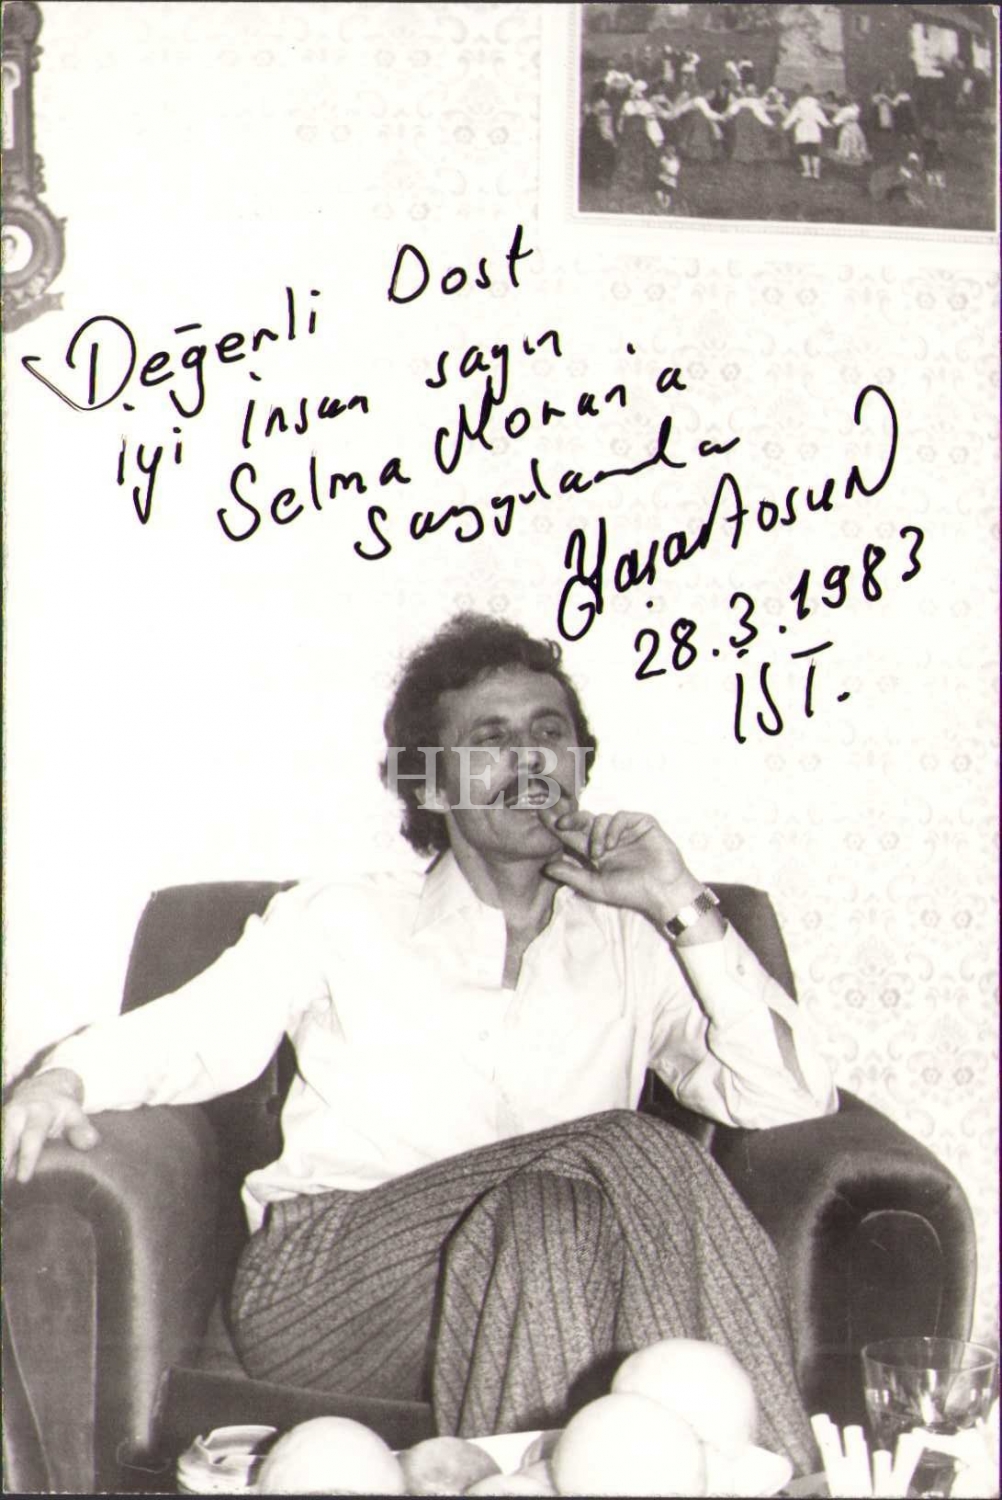 Değerli Dost
iyi insan sayın
Selma Moran'a
Saygılarımla
Yaşar Tosun
28.3.1983
İST.
HEBU